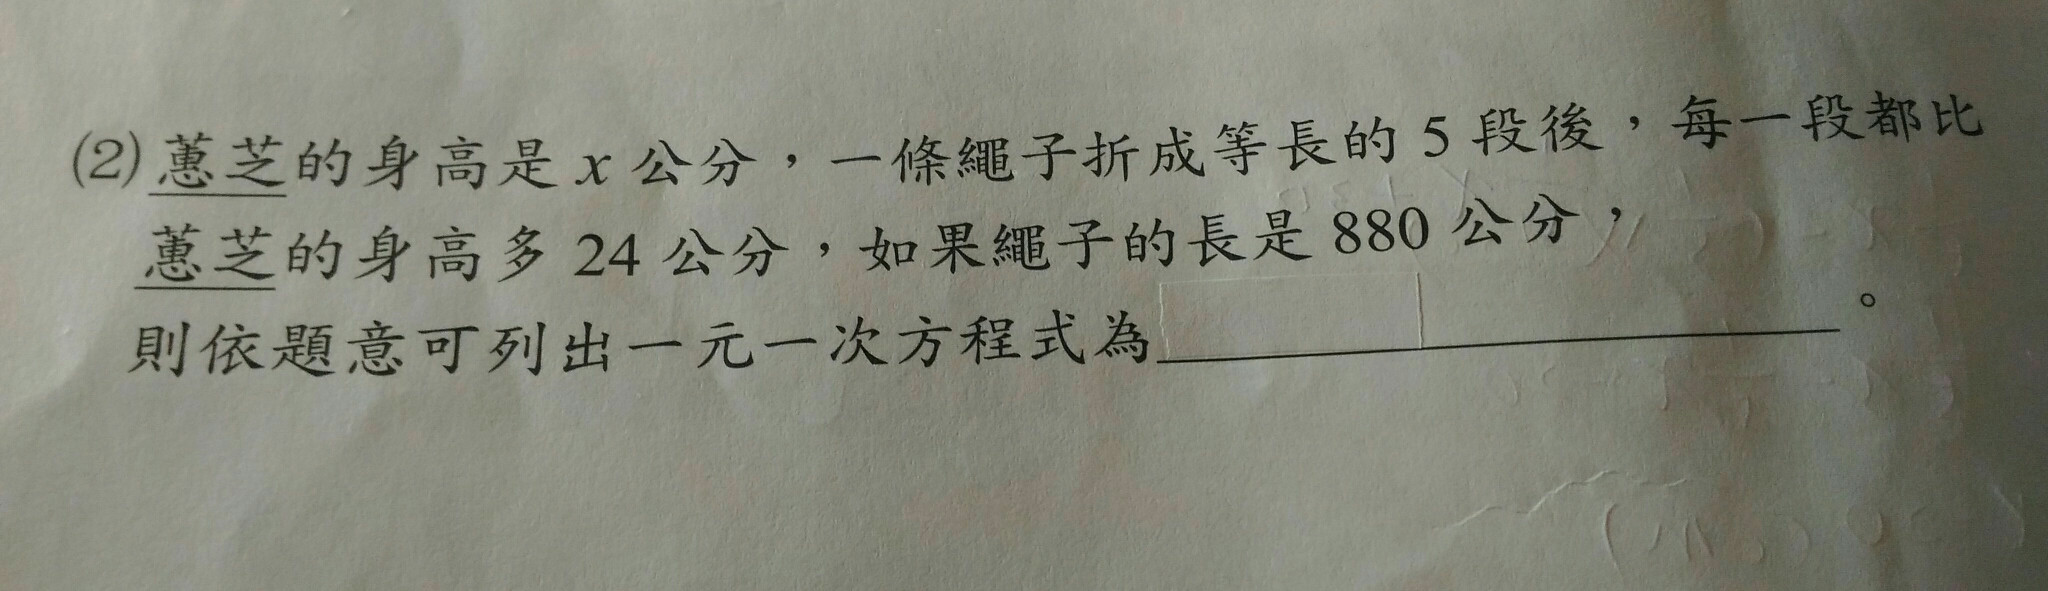 (2)蕙芝的身高是 x 公分，一條繩子折成等長的 5 段後，每一段都比
蕙芝的身高多 24 公分，如果繩子的長是 880 公分，
則依題意可列出一元一次方程式為＿＿＿＿＿＿＿＿。